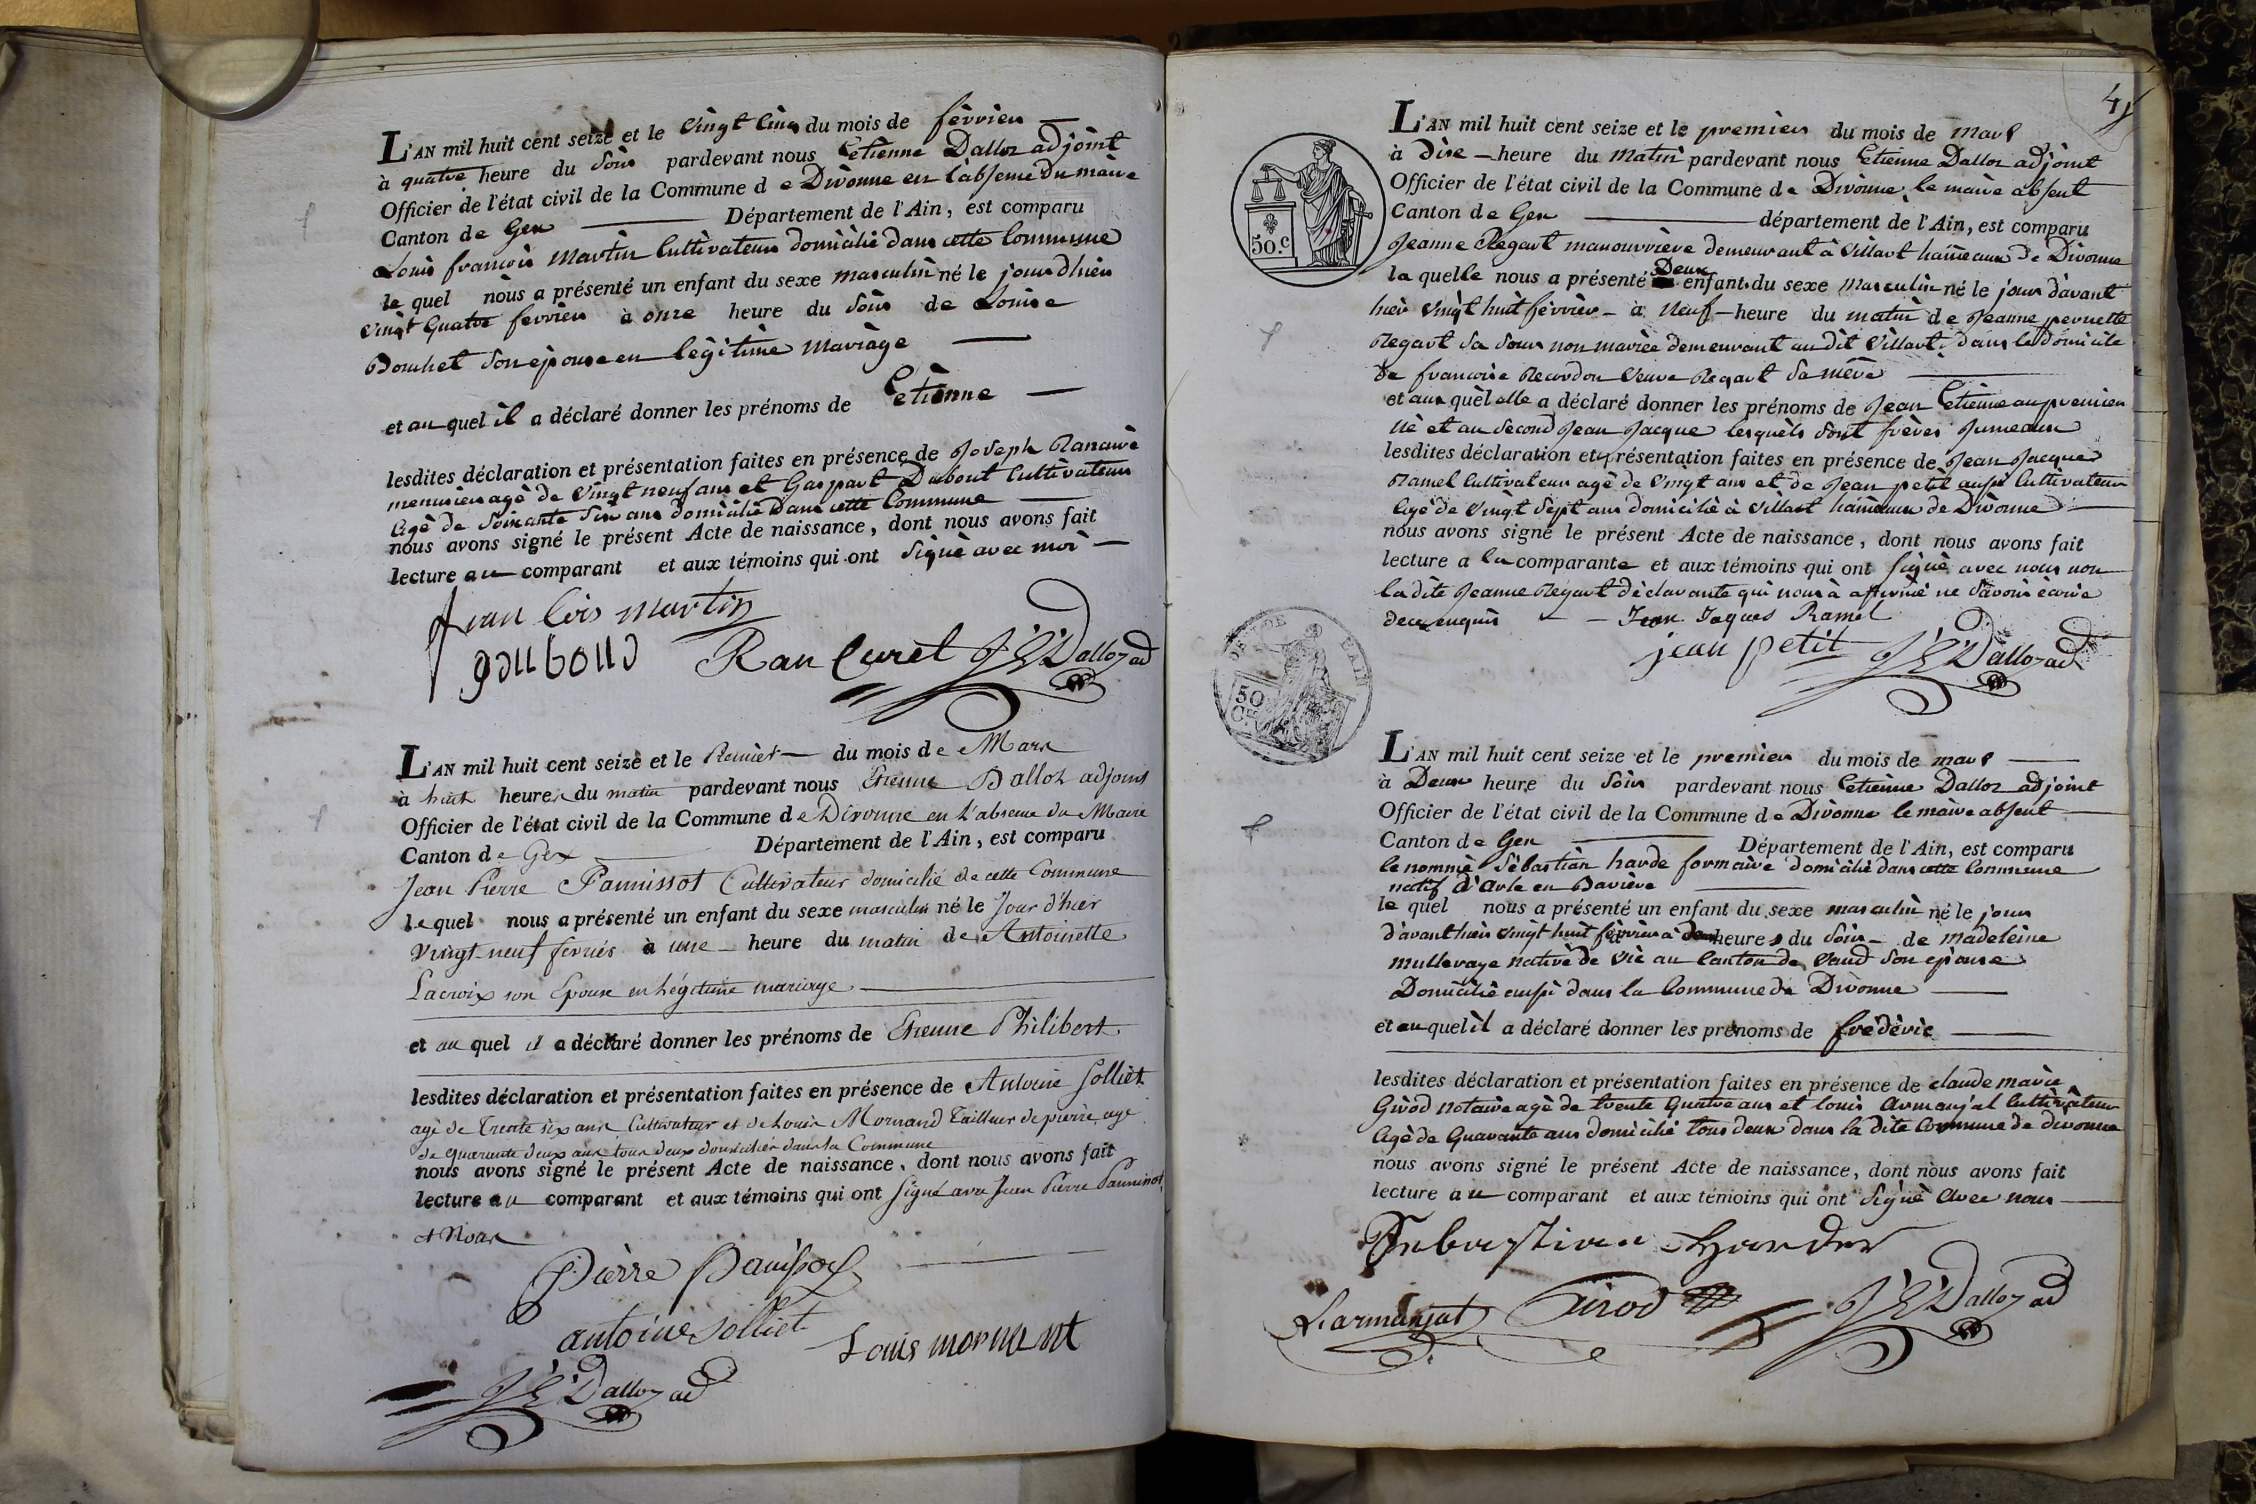 L'AN mil huit cent seize et le vingt cinq du mois de février
à quatre heure du soir pardevant nous Etienne Dalloz adjoint
Officier de l'état civil de la Commune de Divonne en l'absence du maire
Canton de Gex Département de l'Ain, est comparu
Louis françois Martin Cultivateur domicilié dans cette Commune
le quel nous a présenté un enfant du sexe masculin né le jour d'hier
vingt quatre février à onze heure du soir de Louise
Bouchet son épouse en légitime mariage
et au quel il a déclaré donner les prénoms de Etienne
lesdites déclaration et présentation faites en présence de Joseph
menusier agé de vingt neuf ans et Gaspart Dubout Cultivateur
agé de soixante six ans domicilié dans cette Commune
nous avons signé le présent Acte de naissance, dont nous avons fait
lecture au comparant et aux témoins qui ont signé avec moi
Jean lois martin
Ran Curèt J E Dalloz ad
L'AN mil huit cent seize et le Premier du mois de Mars
à huit heures du matin pardevant nous Etienne Dalloz adjoint
Officier de l'état civil de la Commune de Divonne en l'absence du Maire
Canton de Gex Département de l'Ain, est comparu
Jean Pierre Pannissot Cultivateur domicilié de cette Commune
lequel nous a présenté un enfant du sexe masculin né le Jour d'hier
vingt-neuf février à une heure du matin de Antoinette
Lacroix son Epouse en Légitime mariage
et au quel il a déclaré donner les prénoms de Etienne Philibert
lesdites déclaration et présentation faites en présence de Antoine Solliet
agé de Trente six ans Cultivateur et de Louis Mornand Tailleur de pierre agé
de quarante deux ans tous deux domiciliés dans la Commune
nous avons signé le présent Acte de naissance, dont nous avons fait
lecture au comparant et aux témoins qui ont signé avec Jean Pierre Pannissot
et Nous
Pièrre Panissot
antoine solliet
Louis mornant
J E Dalloz ad
L'AN mil huit cent seize et le premier du mois de mars
à dixe heure du matin pardevant nous Etienne Dalloz adjoint
Officier de l'état civil de la Commune de Divonne le maire absent
Canton de Gex département de l'Ain, est comparu
Jeanne Regart manouvrière demeurant à Villart hameaux de Divonne
la quelle nous a présenté Deux enfants du sexe Masculin né le jour d'avant
hier vingt huit février à neuf heure du matin de Jeanne pernette
Regart sa sœur non mariée demeurant au dit Villart, dans le domicile
de francoise Recordon veuve Regart sa mère
et aux quèl elle a déclaré donner les prénoms de Jean Etienne au premier
né et au second Jean Jacque lesquèls sont frères Jumeaux
lesdites déclaration et présentation faites en présence de Jean Jacque
Ramel Cultivateur agé de vingt ans et de Jean petit aussi Cultivateur
agé de vingt sept ans domicilié à Villart hameaux de Divonne
nous avons signé le présent Acte de naissance, dont nous avons fait
lecture a la comparante et aux témoins qui ont signé avec nous non
la dite Jeanne Regart déclarante qui nous à affirmé ne savoir écrire
de ce enquis Jean Jaques Ramel
jean petit J E Dalloz ad
50.c
50
L'AN mil huit cent seize et le premier du mois de mars
à Deux heure du soir pardevant nous Etienne Dalloz adjoint
Officier de l'état civil de la Commune de Divonne le maire absent
Canton de Gex Département de l'Ain, est comparu
le nommé Sébastian harde formaire domicilié dans cette Commune
natif d'Arle en Bavière
le quel nous a présenté un enfant du sexe masculin né le jour
d'avant hier vingt huit février à deux heures du soir de madeleine
mullevaye native de Vic au Canton de Vaud son épouse
Domicilié aussi dans la Commune de Divonne
et au quel il a déclaré donner les prénoms de frédéric
lesdites déclaration et présentation faites en présence de claude marie
Girod notaire agé de trente quatre ans et louis armanjat Cultivateur
agé de quarante ans domicilié tous deux dans la dite Commune de divonne
nous avons signé le présent Acte de naissance, dont nous avons fait
lecture au comparant et aux témoins qui ont signé avec nous
Sebastian Harder
L armanjat Girod J E Dalloz ad